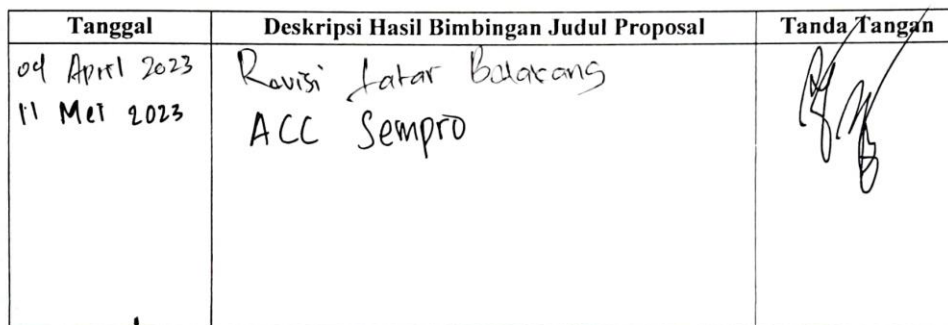 Tanggal Deskripsi Hasil Bimbingan Judul Proposal Tanda Tangan
04 April 2023 Revisi Latar Balakang
11 Mei 2023 ACC Sempro